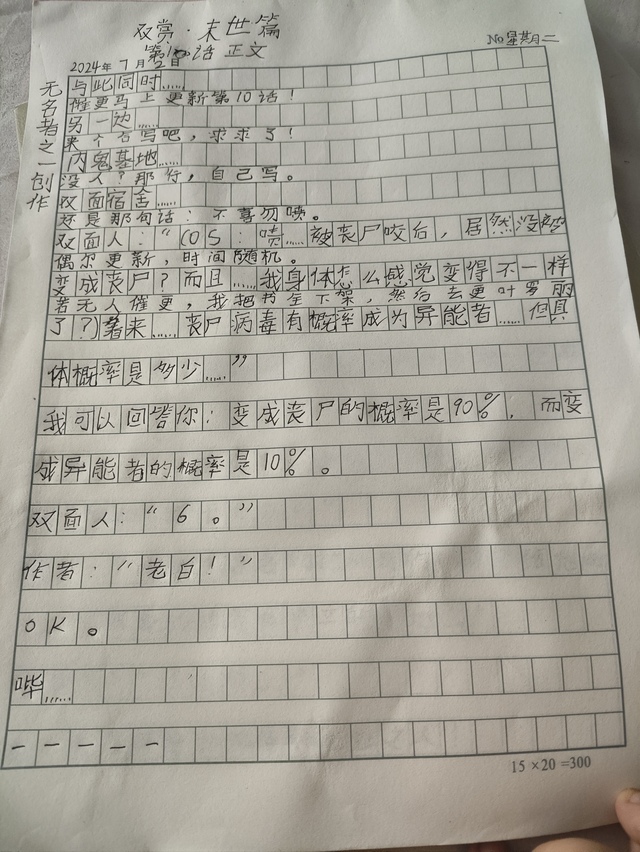 双赏·末世篇
第10话 正文
No 星期二
2024年7月2日
无名者之一创作
与此同时……
催更马上更新第10话！
另一边……
来个右写吧，求求了！
内鬼基地……
没人？那行，自己写。
双面宿舍……
还是那句话：不喜勿喷。
双面人：“COS：啧……被丧尸咬后，居然没
偶尔更新，时间随机。
变成丧尸？而且……我身体怎么感觉变得不一样
若无人催更，我把我 下 ，然后去更叶罗丽
了？）看来……丧尸病毒有概率成为异能者……但具
体概率是多少……”
我可以回答你：变成丧尸的概率是90%，而变
成异能者的概率是10%。
双面人：“6。”
作者：“老白！”
OK。
哔……
一一一一一
15×20=300